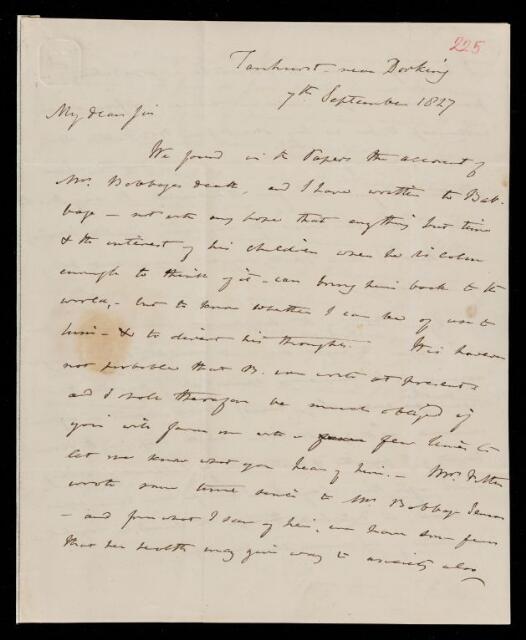 225
Tanhurst - near Dorking
7th September 1827
My dear Sir
We found in the Papers the account of
Mrs. Babbage's death, and I have written to Bab-
bage - not with any hope that anything but time
& the interest of his children when he is calm
enough to think of it - can bring him back to the
world, - but to know whether I can be of use to
him - & to divert his thoughts. It is however
not probable that B. can write at present
and I shall therefore be much obliged if
you will favour me with a few lines to
let me know what you hear of him. - Mrs. Fitton
wrote some time since to Mrs. Babbage Senior
- and from what I saw of her, we have some fears
that her health may give way to anxiety also